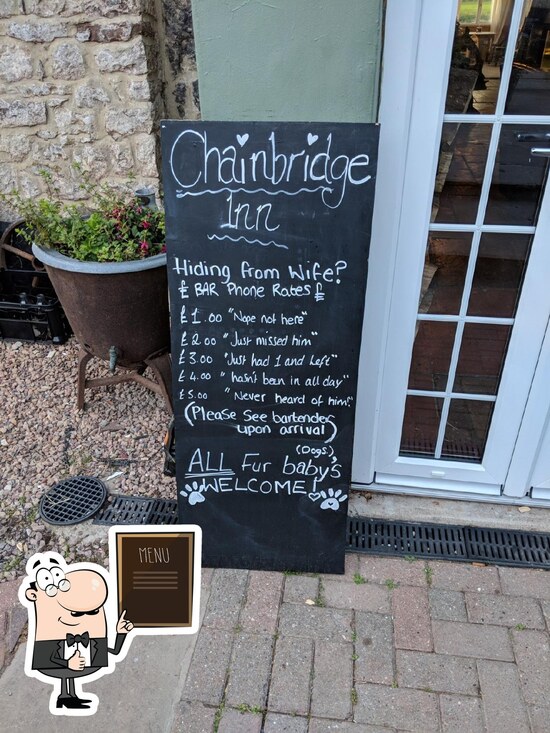 Chainbridge
Inn
Hiding from Wife?
£ BAR Phone Rates £
£1.00 "Nope not here"
£2.00 "Just missed him"
£3.00 "Just had 1 and left"
£4.00 "hasn't been in all day"
£5.00 "Never heard of him!"
(Please See bartender
upon arrival)
(Dogs!)
ALL Fur baby's
WELCOME!
MENU